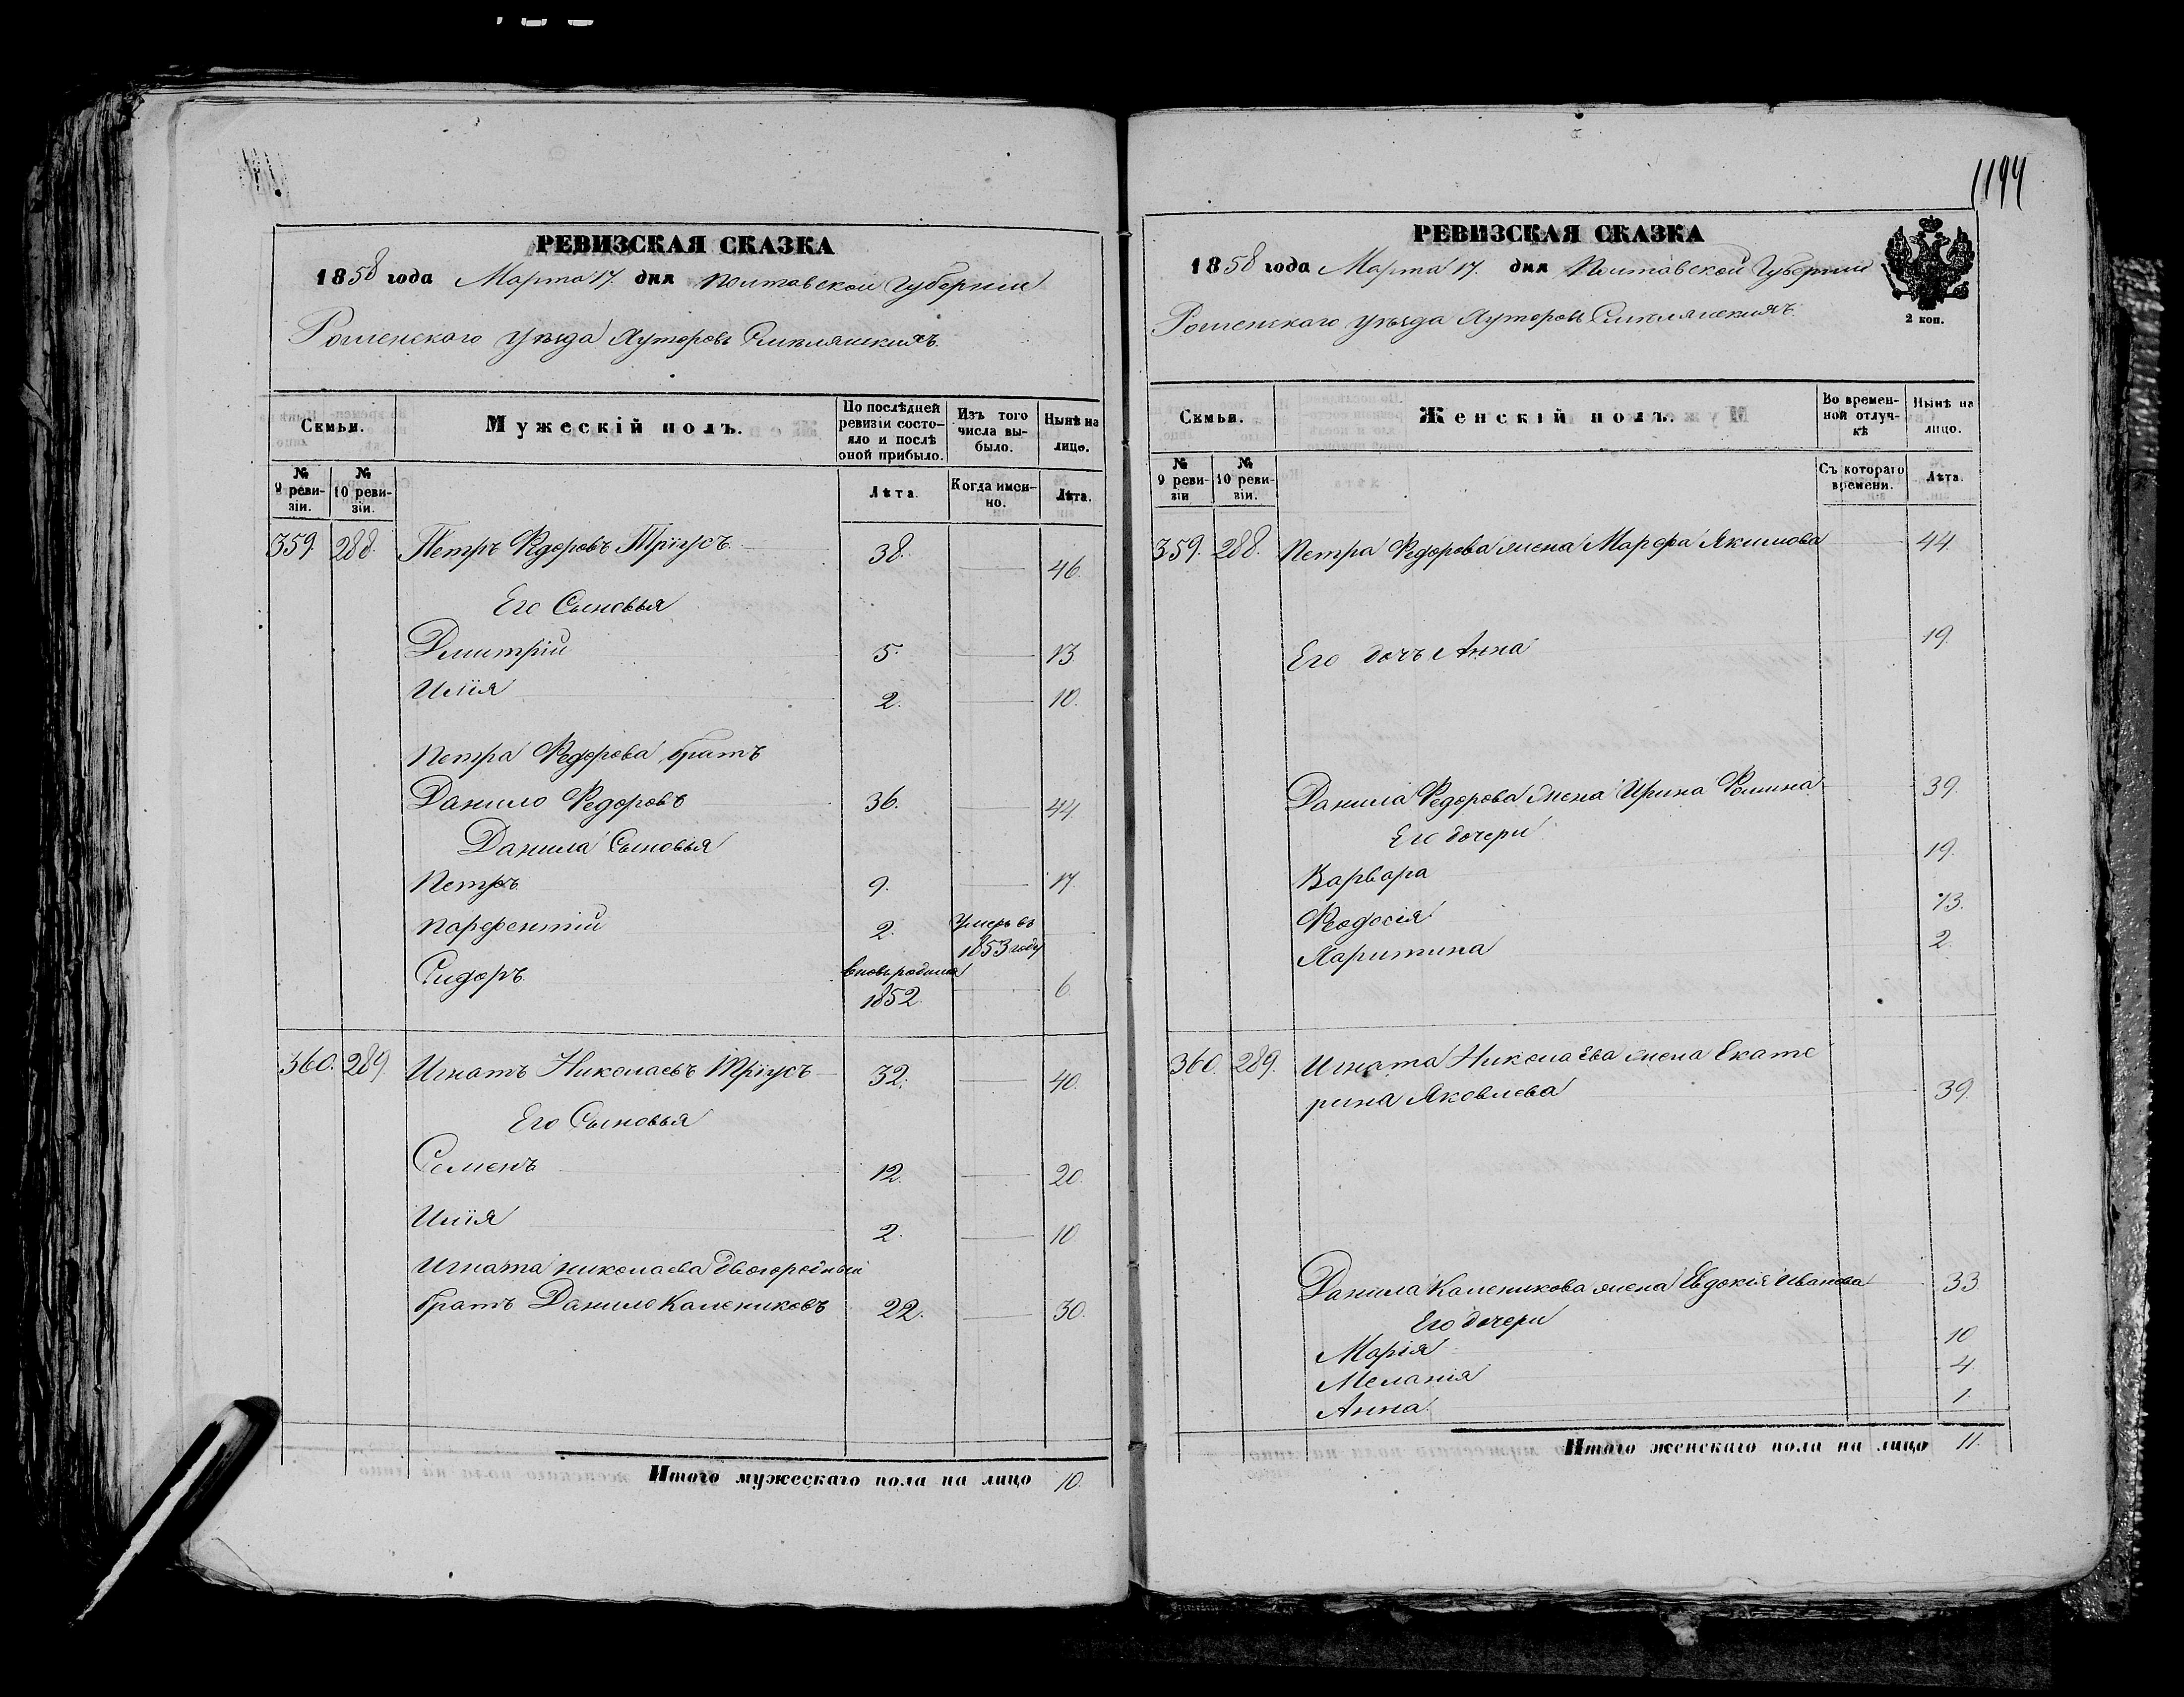 1194
РЕВИЗСКАЯ СКАЗКА
1858 года Марта 17. дня Полтавской Губерніи
Роменского уѣзда Хуторовъ
Семьи.
Мужескій полъ.
По послѣдней ревизіи состояло и послѣ оной прибыло.
Изъ того числа выбыло.
Нынѣ на лицо.
№ 9 ревизіи.
№ 10 ревизіи.
Лѣта.
Когда именно.
Лѣта.
359. 288. Петръ Федоровъ Тригусъ 38. 46.
Его Сыновья
Дмитрій 5. 13
Илія 2. 10.
Петра Федорова братъ
Данило Федоровъ 36. 44
Данила Сыновья
Петръ 9. 17.
Парфентій 2. Умеръ въ 1853 году
Сидоръ вновь родился 1852 6
360. 289 Игнатъ Николаевъ Тригусъ 32. 40.
Его Сыновья
Семенъ 12. 20.
Илія 2. 10
Игната Николаева двоюродный
братъ Данило Калениковъ 22. 30.
Итого мужескаго пола на лицо 10.
РЕВИЗСКАЯ СКАЗКА
1858 года Марта 17. дня Полтавской Губерніи
Роменского уѣзда Хуторовъ
2 коп.
Семьи.
Женскій полъ.
Во временной отлучкѣ
Нынѣ на лицо.
№ 9 ревизіи
№ 10 ревизіи.
Съ котораго времени.
Лѣта.
359. 288. Петра Федорова жена Марфа Якимова 44.
Его дочь Анна 19
Данила Федорова жена Ирина Фомина 39.
Его дочери
Варвара 19.
Феодосія 13.
Харитина 2.
360. 289. Игната Николаева жена Екате
рина Яковлева 39.
Данила Каленикова жена Евдокія Иванова 33
Его дочери
Марія 10
Меланія 4.
Анна 1.
Итого женскаго пола на лицо 11.